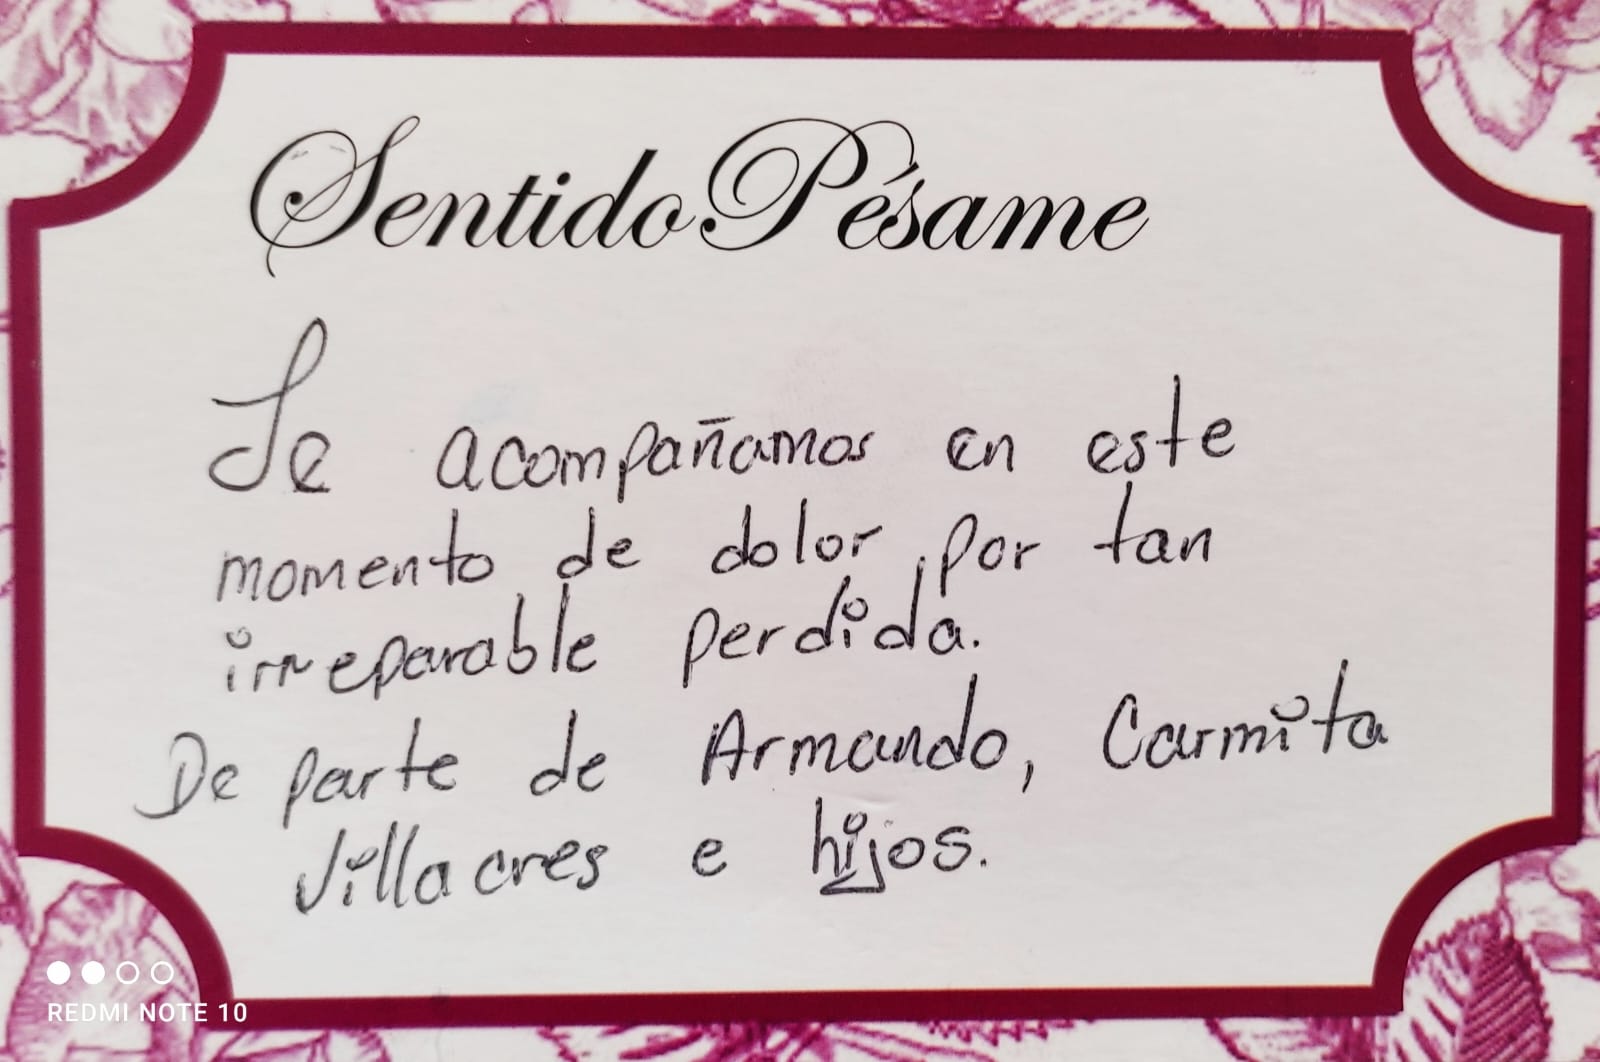 Sentido Pésame
Le acompañamos en este
momento de dolor, por tan
irreparable perdida.
De parte de Armando, Carmita
Villacres e hijos.
REDMI NOTE 10